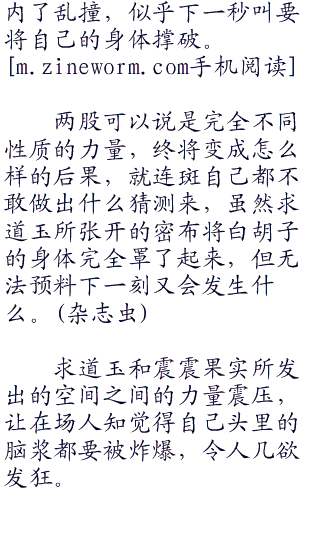 内了乱撞，似乎下一秒叫要
将自己的身体撑破。
[m.zineworm.com手机阅读]
两股可以说是完全不同
性质的力量，终将变成怎么
样的后果，就连斑自己都不
敢做出什么猜测来，虽然求
道玉所张开的密布将白胡子
的身体完全罩了起来，但无
法预料下一刻又会发生什
么。(杂志虫)
求道玉和震震果实所发
出的空间之间的力量震压，
让在场人知觉得自己头里的
脑浆都要被炸爆，令人几欲
发狂。